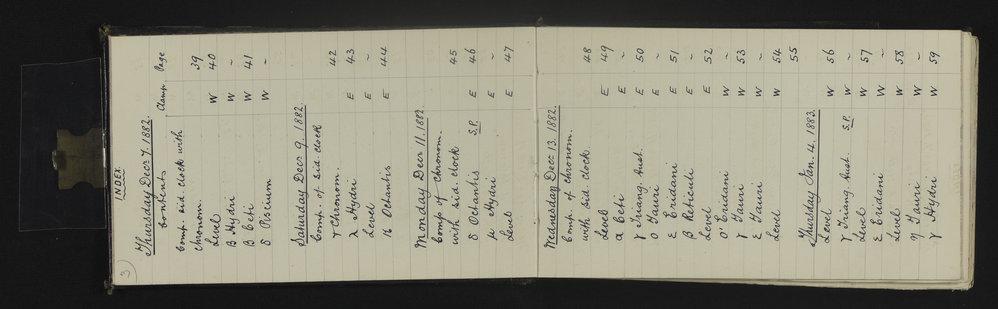 3
INDEX.
Thursday Decr 7. 1882.
Contents Clamp. Page
Comp. sid. clock with
chronom. 39
Level W 40
β Hydri W ~
β Ceti W 41
δ Piscium W ~
Saturday Decr 9. 1882.
Comp. of sid. clock
& Chronom. 42
λ Hydri E 43
Level E ~
16 Octantis E 44
Monday Decr 11. 1882
Comp of Chronom.
with sid. clock 45
δ Octantis S.P. E 46
μ Hydri E ~
Level E 47
Wednesday Decr 13. 1882.
Comp. of chronom.
with sid clock. 48
Level E 49
α Ceti E ~
γ Triang. Aust. E 50
ο Tauri E ~
ε Eridani E 51
β Reticuli E ~
Level E 52
ο' Eridani W ~
γ Tauri W 53
ε Tauri W ~
Level W 54
55
Thursday Jan. 4. 1883.
Level W 56
γ Triang. Aust. S.P. W ~
Level W 57
ε Eridani W ~
Level W 58
η Tauri W ~
γ Hydri W 59